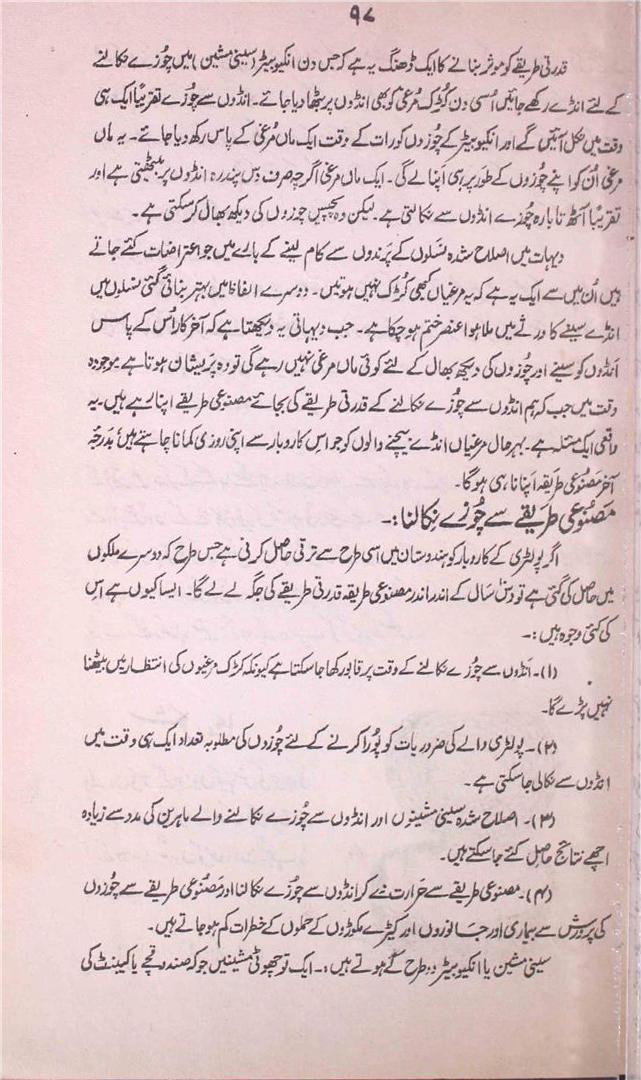 ۹۷
قدرتی طریقے کو موثر بنانے کا ایک ڈھنگ یہ ہے کہ جس دن انکیوبیٹر (سینی مشین) میں چوزے نکالنے
کے لئے انڈے رکھے جائیں اُسی دن کُڑک مُرغی کو بھی انڈوں پر بٹھا دیا جائے۔ انڈوں سے چُوزے تقریباً ایک ہی
وقت میں نکل آئیں گے اور انکیوبیٹر کے چُوزوں کو رات کے وقت ایک ماں مُرغی کے پاس رکھ دیا جائے۔ یہ ماں
مرغی اُن کو اپنے چُوزوں کے طور پر ہی اپنا لے گی۔ ایک ماں مرغی اگرچہ صرف دس پندرہ انڈوں پر بیٹھتی ہے اور
تقریباً آٹھ تا بارہ چُوزے انڈوں سے نکالتی ہے۔ لیکن وہ پچیس چوزوں کی دیکھ بھال کر سکتی ہے۔
دیہات میں اصلاح شدہ نسلوں کے پرندوں سے کام لینے کے بارے میں جو اعتراضات کئے جاتے
ہیں اُن میں سے ایک یہ ہے کہ یہ مرغیاں کبھی کُڑک نہیں ہوتیں۔ دوسرے الفاظ میں بہتر بنائی گئی نسلوں میں
انڈے سینے کا ورثے میں ملا ہوا عنصر ختم ہو چکا ہے۔ جب دیہاتی یہ دیکھتا ہے کہ آخر کار اُس کے پاس
انڈوں کو سینے اور چُوزوں کی دیکھ بھال کے لئے کوئی ماں مرغی نہیں رہے گی تو وہ پریشان ہوتا ہے۔ موجودہ
وقت میں جب کہ ہم انڈوں سے چُوزے نکالنے کے قدرتی طریقے کی بجائے مصنوعی طریقے اپنا رہے ہیں۔ یہ
واقعی ایک مسئلہ ہے۔ بہر حال مرغیاں انڈے بیچنے والوں کو جو اس کاروبار سے اپنی روزی کمانا چاہتے ہیں، بدرجۂ
آخر مصنوعی طریقہ اپنانا ہی ہوگا۔
مصنوعی طریقے سے چُوزے نکالنا:۔
اگر پولٹری کے کاروبار کو ہندوستان میں اسی طرح سے ترقی حاصل کرنی ہے جس طرح کہ دوسرے ملکوں
میں حاصل کی گئی ہے تو دس سال کے اندر اندر مصنوعی طریقہ قدرتی طریقے کی جگہ لے لے گا۔ ایسا کیوں ہے اس
کی کئی وجوہ ہیں:۔
(۱)۔ انڈوں سے چُوزے نکالنے کے وقت پر قابو رکھا جا سکتا ہے کیونکہ کڑک مرغیوں کی انتظار میں بیٹھنا
نہیں پڑے گا۔
(۲)۔ پولٹری والے کی ضروریات کو پُورا کرنے کے لئے چُوزوں کی مطلوبہ تعداد ایک ہی وقت میں
انڈوں سے نکالی جا سکتی ہے۔
(۳)۔ اصلاح شدہ سینی مشینوں اور انڈوں سے چُوزے نکالنے والے ماہرین کی مدد سے زیادہ
اچھے نتائج حاصل کئے جا سکتے ہیں۔
(۴)۔ مصنوعی طریقے سے حرارت دے کر انڈوں سے چُوزے نکالنا اور مصنوعی طریقے سے چُوزوں
کی پرورش سے بیماری اور جانوروں اور کیڑے مکوڑوں کے حملوں کے خطرات کم ہو جاتے ہیں۔
سینی مشین یا انکیوبیٹر دو طرح کے ہوتے ہیں:۔ ایک تو چھوٹی مشینیں جو کہ صندوقچے یا کیبنٹ کی